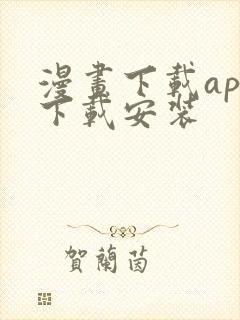 漫畫下載ap
下載安裝
賀蘭茵